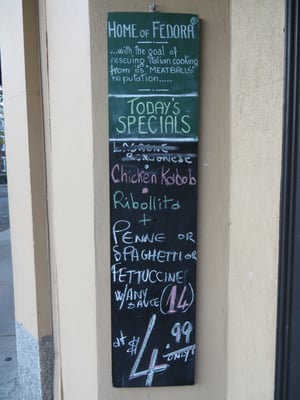 HOME OF FEDORA®
...with the goal of
rescuing italian cooking
from its "MEATBALLS"
reputation.....
TODAY'S
SPECIALS
LASAGNE
Chicken Kabob
Ribollita
+
PENNE OR
SPAGHETTI OR
FETTUCCINE
W/ANY
SAUCE (14)
at $4.99
ONLY!